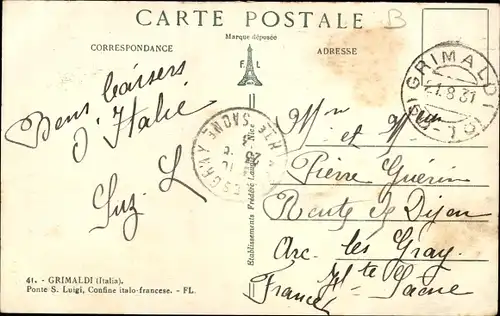 CARTE POSTALE
B
Marque déposée
CORRESPONDANCE
ADRESSE
F L
GRIMALDI
21.8.31
Bons baisers
d'Italie
Suz. L
Mr et Mme
Pierre Guérin
Route de Dijon
Arc. les Gray
Hte Saône
France
HTE SAONE
Etablissements Frédéric Laugier - Nice
41. - GRIMALDI (Italia).
Ponte S. Luigi, Confine italo-francese. - FL.